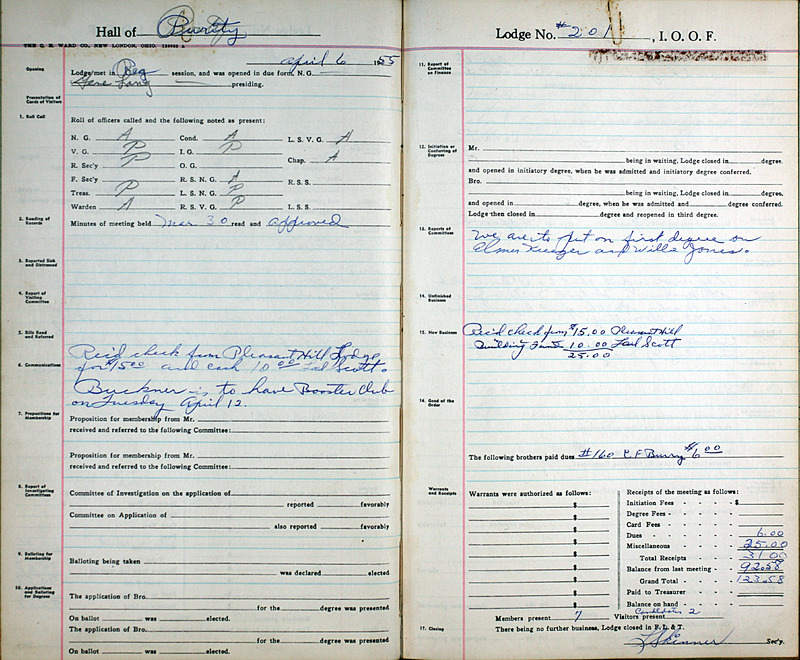 Hall of Purity
THE C. E. WARD CO., NEW LONDON, OHIO.
April 6 1955
Opening
Lodge met in Reg session, and was opened in due form, N. G.
Gene Long presiding.
Presentation of Cards of Visitors
1. Roll Call
Roll of officers called and the following noted as present:
N. G. A Cond. A L. S. V. G. A
V. G. P I. G. P
R. Sec'y P O. G. Chap. A
F. Sec'y R. S. N. G. A R. S. S.
Treas. P L. S. N. G. P
Warden A R. S. V. G. P L. S. S.
2. Reading of Records
Minutes of meeting held Mar 30 read and approved
3. Reported Sick and Distressed
4. Report of Visiting Committee
5. Bills Read and Referred
6. Communications
Rec'd check from Pleasant Hill Lodge
for 15.00 and cash 10.00 Scott.
Buckner is to have Booster Club
on Tuesday April 12.
7. Propositions for Membership
Proposition for membership from Mr.
received and referred to the following Committee:
Proposition for membership from Mr.
received and referred to the following Committee:
8. Report of Investigating Committees
Committee of Investigation on the application of
reported favorably
Committee on Application of
also reported favorably
9. Balloting for Membership
Balloting being taken
was declared elected
10. Applications and Balloting for Degrees
The application of Bro.
for the degree was presented
On ballot was elected.
The application of Bro.
for the degree was presented
On ballot was elected.
Lodge No. #201, I. O. O. F.
11. Report of Committee on Finance
12. Initiation or Conferring of Degrees
Mr.
being in waiting, Lodge closed in degree,
and opened in initiatory degree, when he was admitted and initiatory degree conferred.
Bro.
being in waiting, Lodge closed in degree,
and opened in degree, when he was admitted and degree conferred.
Lodge then closed in degree and reopened in third degree.
13. Reports of Committees
We are to put on first degree on
Elmer and Willie Jones.
14. Unfinished Business
15. New Business
Rec'd check from $15.00 Pleasant Hill
Building Fund 10.00 Scott
25.00
16. Good of the Order
The following brothers paid dues #160 $6.00
Warrants and Receipts
Warrants were authorized as follows:
$
$
$
$
$
$
$
$
$
Receipts of the meeting as follows:
Initiation Fees $
Degree Fees
Card Fees
Dues 6.00
Miscellaneous 25.00
Total Receipts 31.00
Balance from last meeting 92.58
Grand Total 123.58
Paid to Treasurer
Balance on hand
Candidates 2
Members present 7 Visitors present
17. Closing
There being no further business, Lodge closed in F. L. & T.
Skinner Sec'y.